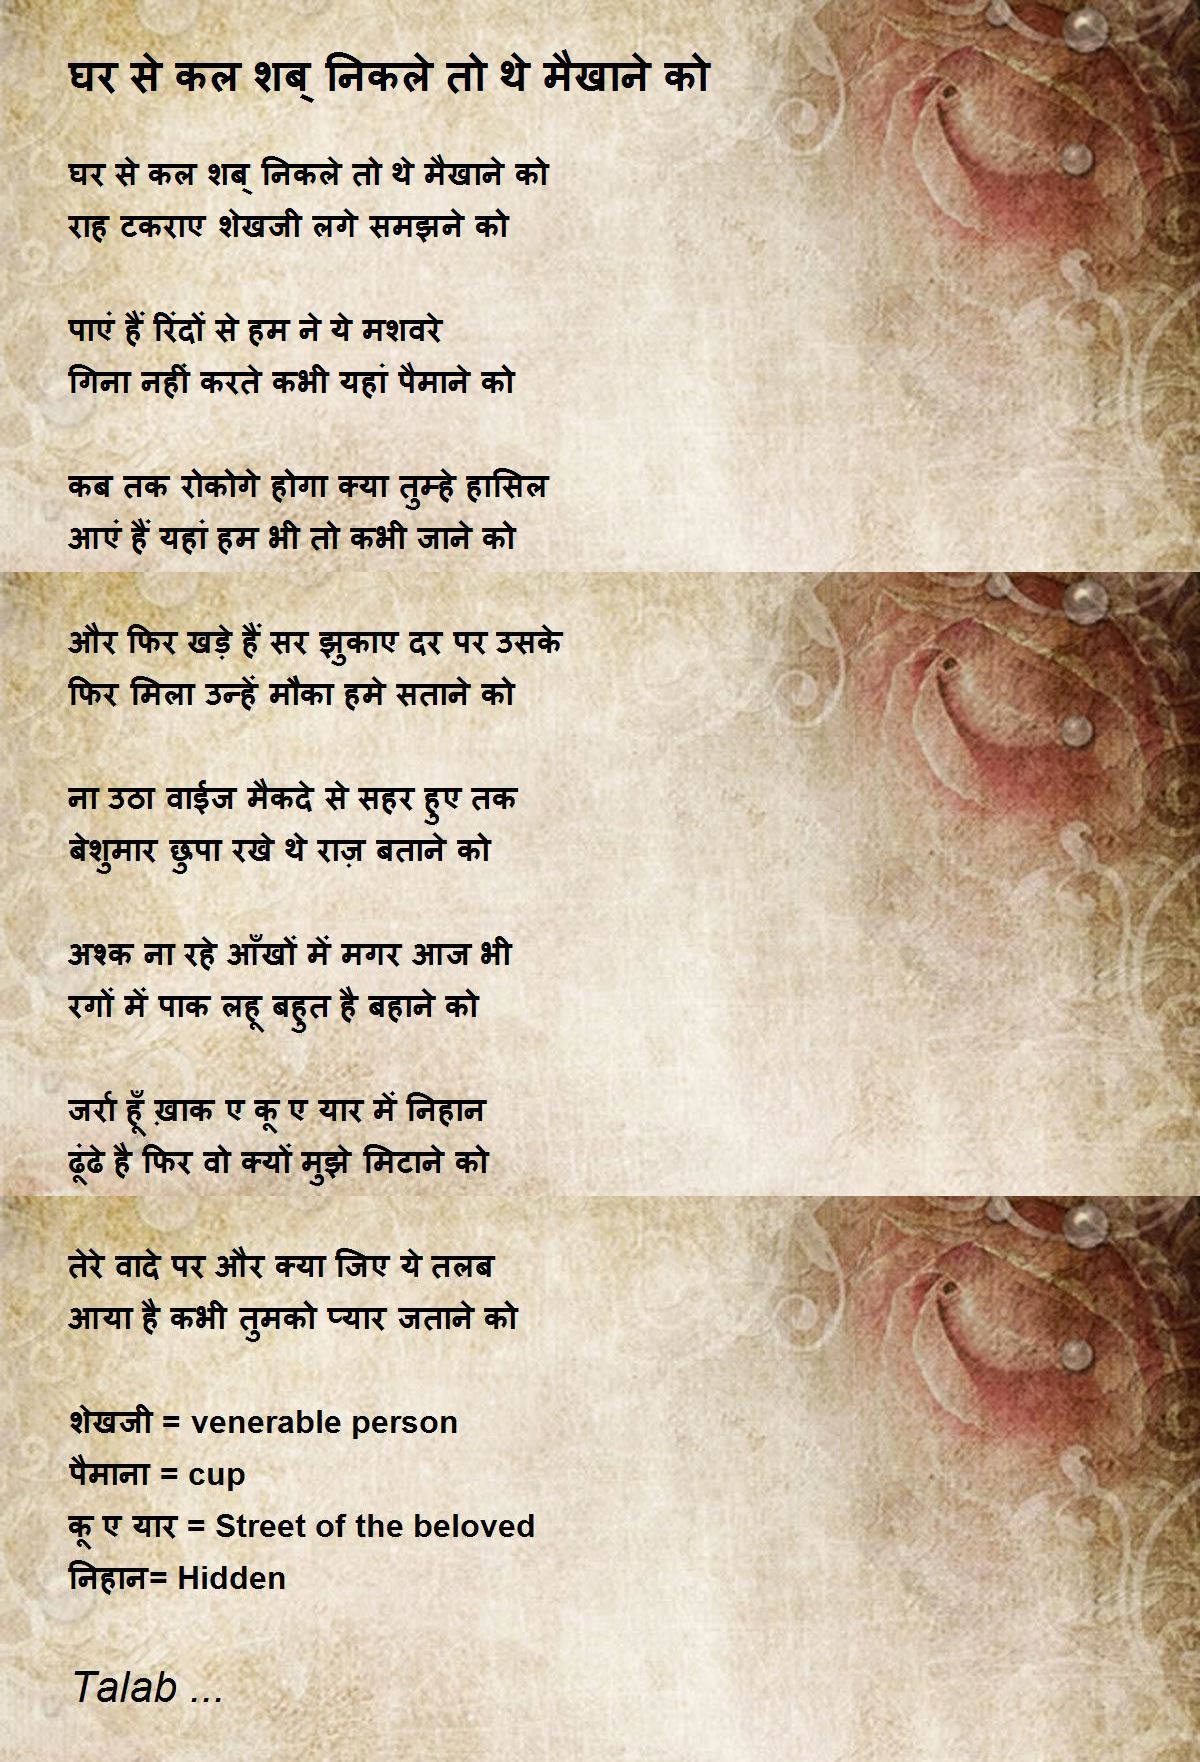 घर से कल शब् निकले तो थे मैखाने को
घर से कल शब् निकले तो थे मैखाने को
राह टकराए शेखजी लगे समझने को
पाएं हैं रिंदों से हम ने ये मशवरे
गिना नहीं करते कभी यहां पैमाने को
कब तक रोकोगे होगा क्या तुम्हे हासिल
आएं हैं यहां हम भी तो कभी जाने को
और फिर खड़े हैं सर झुकाए दर पर उसके
फिर मिला उन्हें मौका हमे सताने को
ना उठा वाईज मैकदे से सहर हुए तक
बेशुमार छुपा रखे थे राज़ बताने को
अश्क ना रहे आँखों में मगर आज भी
रगों में पाक लहू बहुत है बहाने को
जर्रा हूँ ख़ाक ए कू ए यार में निहान
ढूंढे है फिर वो क्यों मुझे मिटाने को
तेरे वादे पर और क्या जिए ये तलब
आया है कभी तुमको प्यार जताने को
शेखजी = venerable person
पैमाना = cup
कू ए यार = Street of the beloved
निहान= Hidden
Talab ...